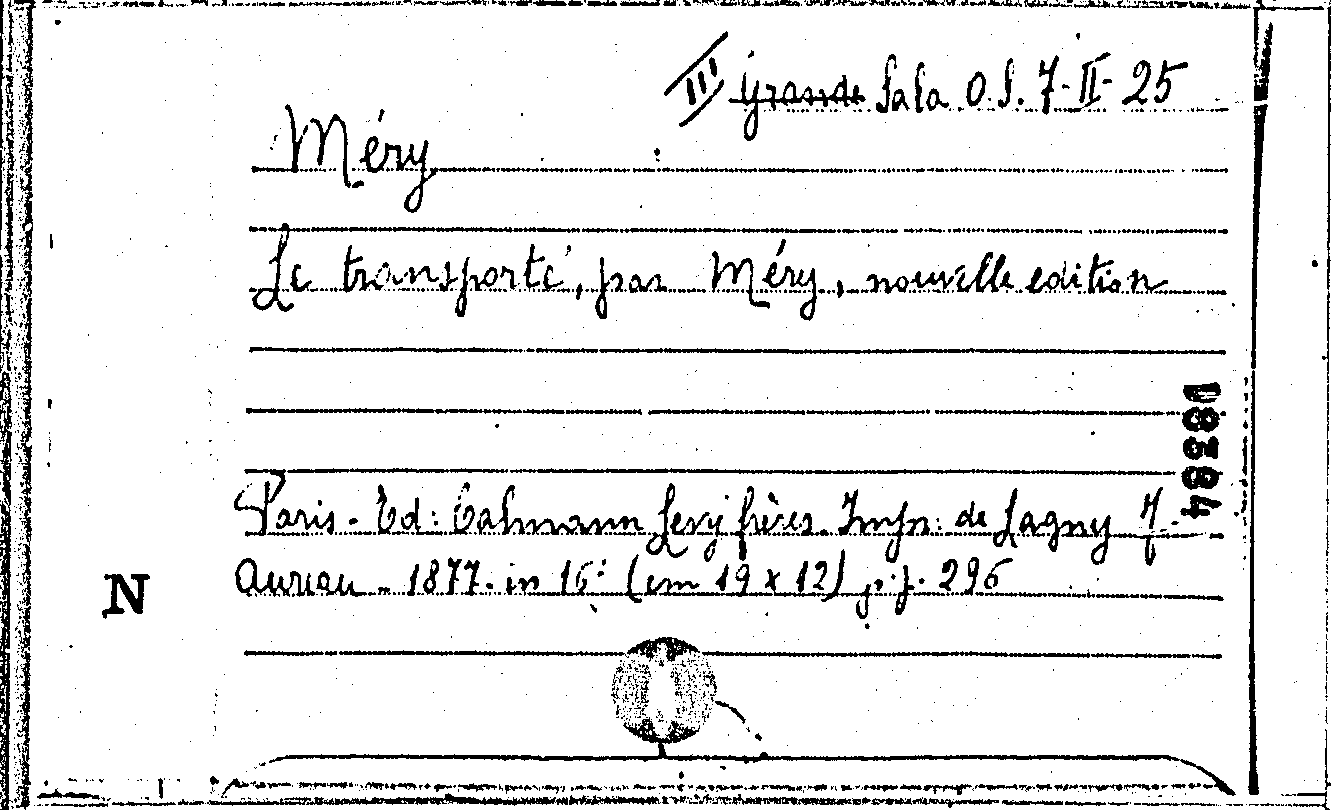 III Grande Sala O.S. 7-II-25
Méry
Le transporté, par Méry, nouvelle edition
08384
Paris - Ed: Calmann Levy frères. Imp: de Lagny F.
Aureau - 1877. in 16: (cm 19 x 12) p.p. 296
N